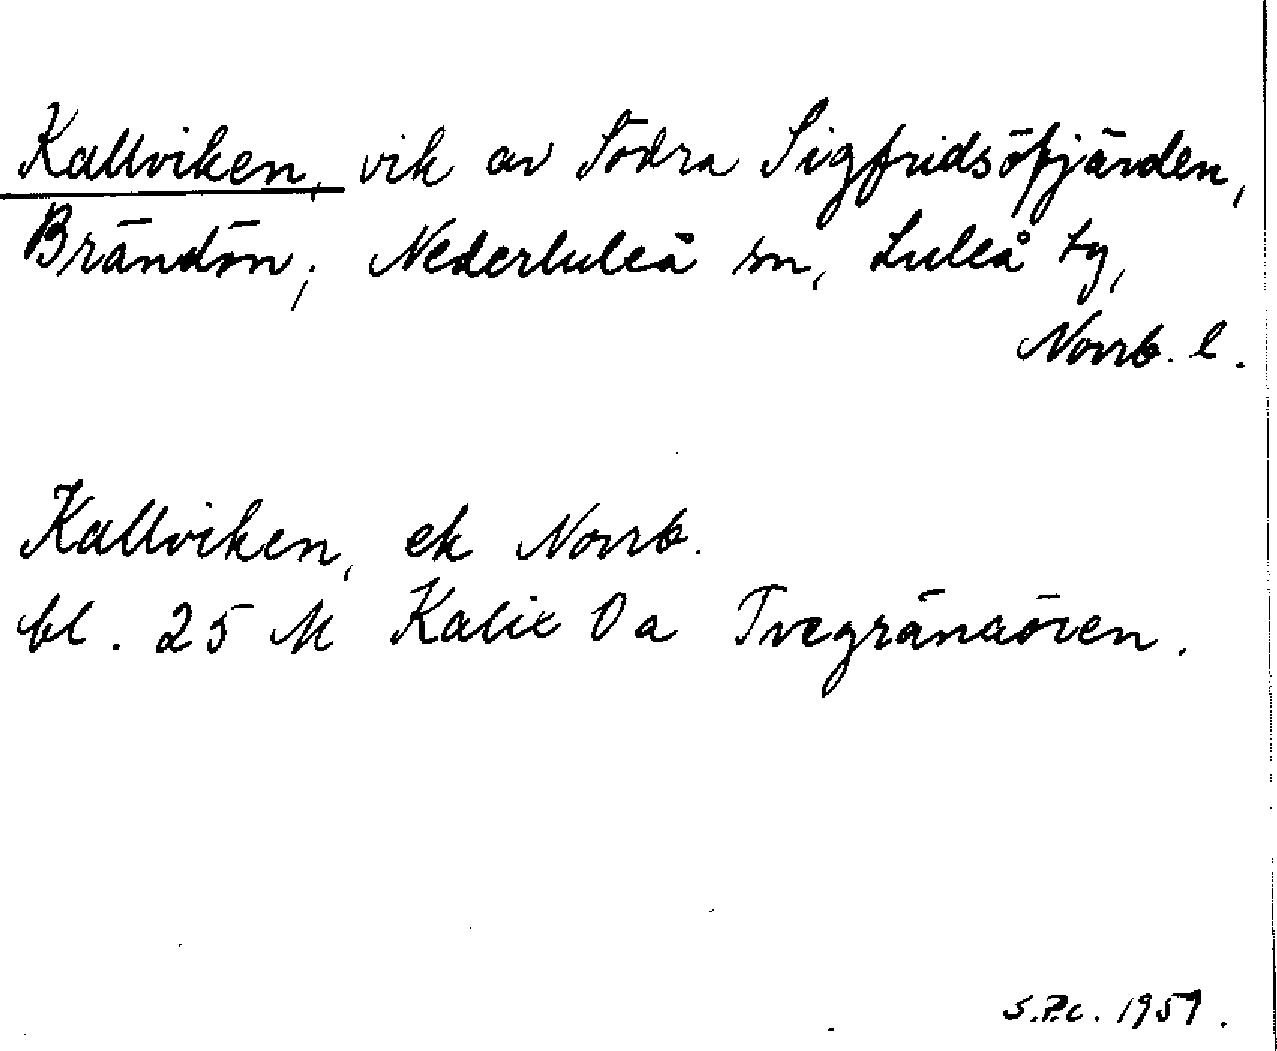 Kallviken, vik av Södra Sigfridsöfjärden,
Brändön, Nederluleå sn, Luleå tg,
Norrb. l.
Kallviken, ek Norrb.
bl. 25 M Kalix Oa Tvegränaören.
S.P.c. 1957.